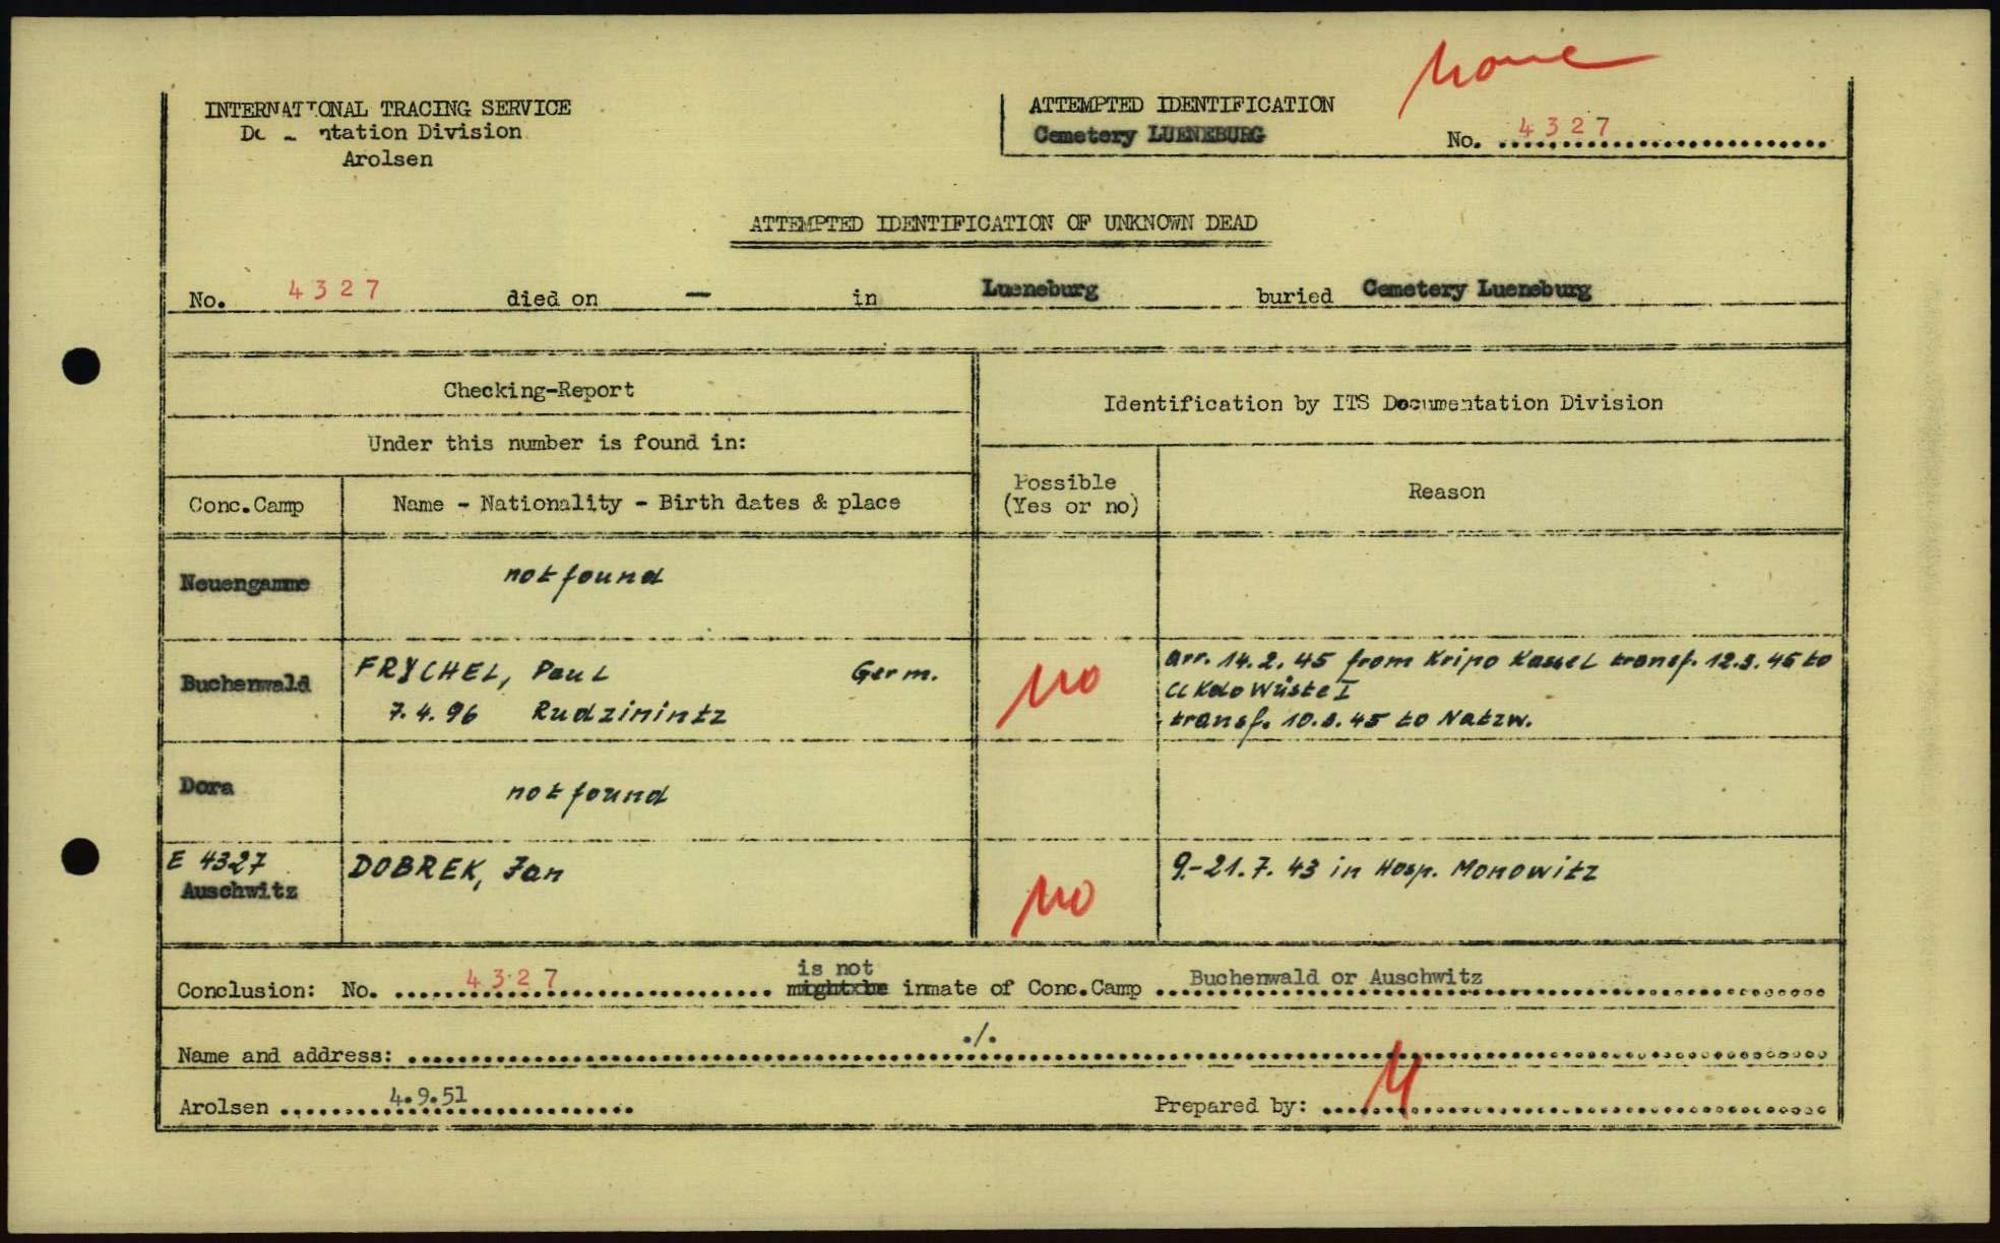 none
INTERNATIONAL TRACING SERVICE
Documentation Division
Arolsen
ATTEMPTED IDENTIFICATION
Cemetery LUENEBURG
No. 4327
ATTEMPTED IDENTIFICATION OF UNKNOWN DEAD
No. 4327 died on — in Lueneburg buried Cemetery Lueneburg
Checking-Report
Identification by ITS Documentation Division
Under this number is found in:
Conc.Camp
Name - Nationality - Birth dates & place
Possible
(Yes or no)
Reason
Neuengamme
not found
Buchenwald
FRYCHEL, Paul Germ.
7.4.96 Rudzinintz
no
arr. 14.2.45 from Kripo Kassel transf. 12.3.45 to
Kdo Wüste I
transf. 10.3.45 to Natzw.
Dora
not found
E 4327
Auschwitz
DOBREK, Jan
no
9.-21.7.43 in Hosp. Monowitz
is not
Conclusion: No. 4327 might be inmate of Conc.Camp Buchenwald or Auschwitz
Name and address: ./.
Arolsen 4.9.51
Prepared by: